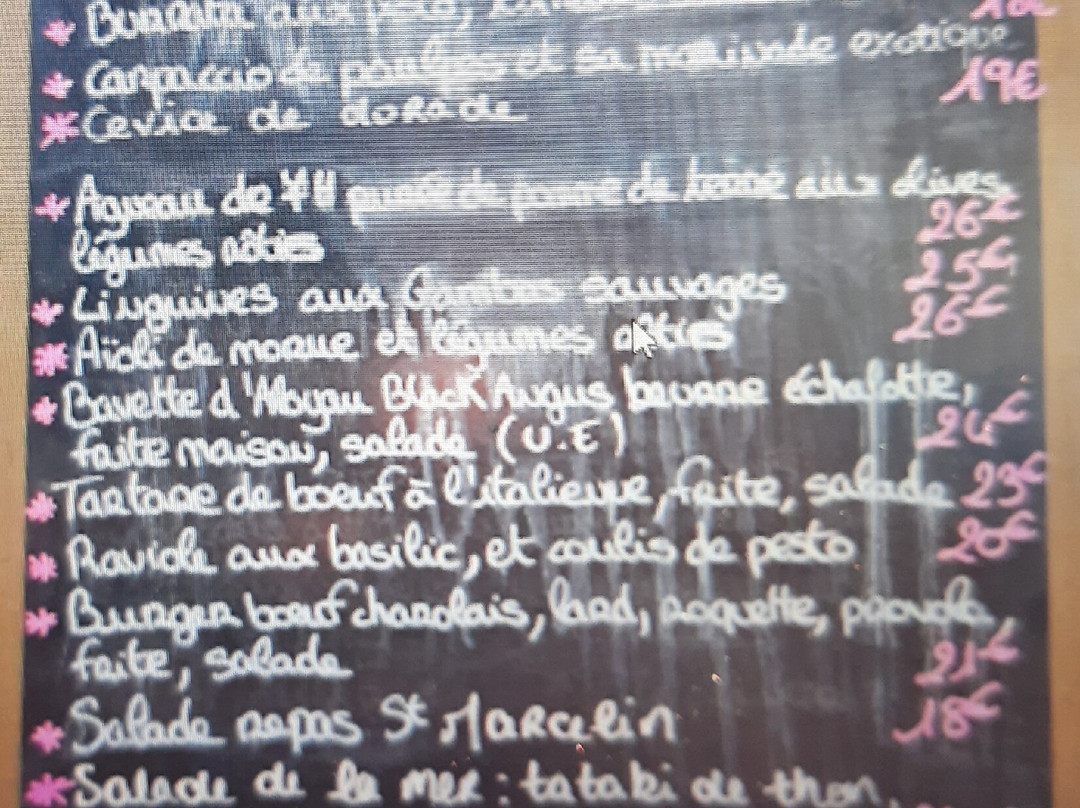 * Burrata aux pesto,
* Carpaccio de poulpes et sa marinade exotique
19€
* Cevice de dorade
* Agneau de 7H purée de pomme de terre aux olives,
légumes rôties 26€
* Linguines aux Gambas sauvages 25€
* Aïoli de morue et légumes rôties 26€
* Bavette d'Aloyau Black Angus beurre échalotte,
frite maison, salade (U.E) 24€
* Tartare de boeuf à l'italienne, frite, salade 23€
* Raviole aux basilic, et coulis de pesto 20€
* Burger boeuf charolais, lard, roquette, provola,
frite, salade 21€
* Salade repas St Marcelin 18€
* Salade de la mer : tataki de thon,